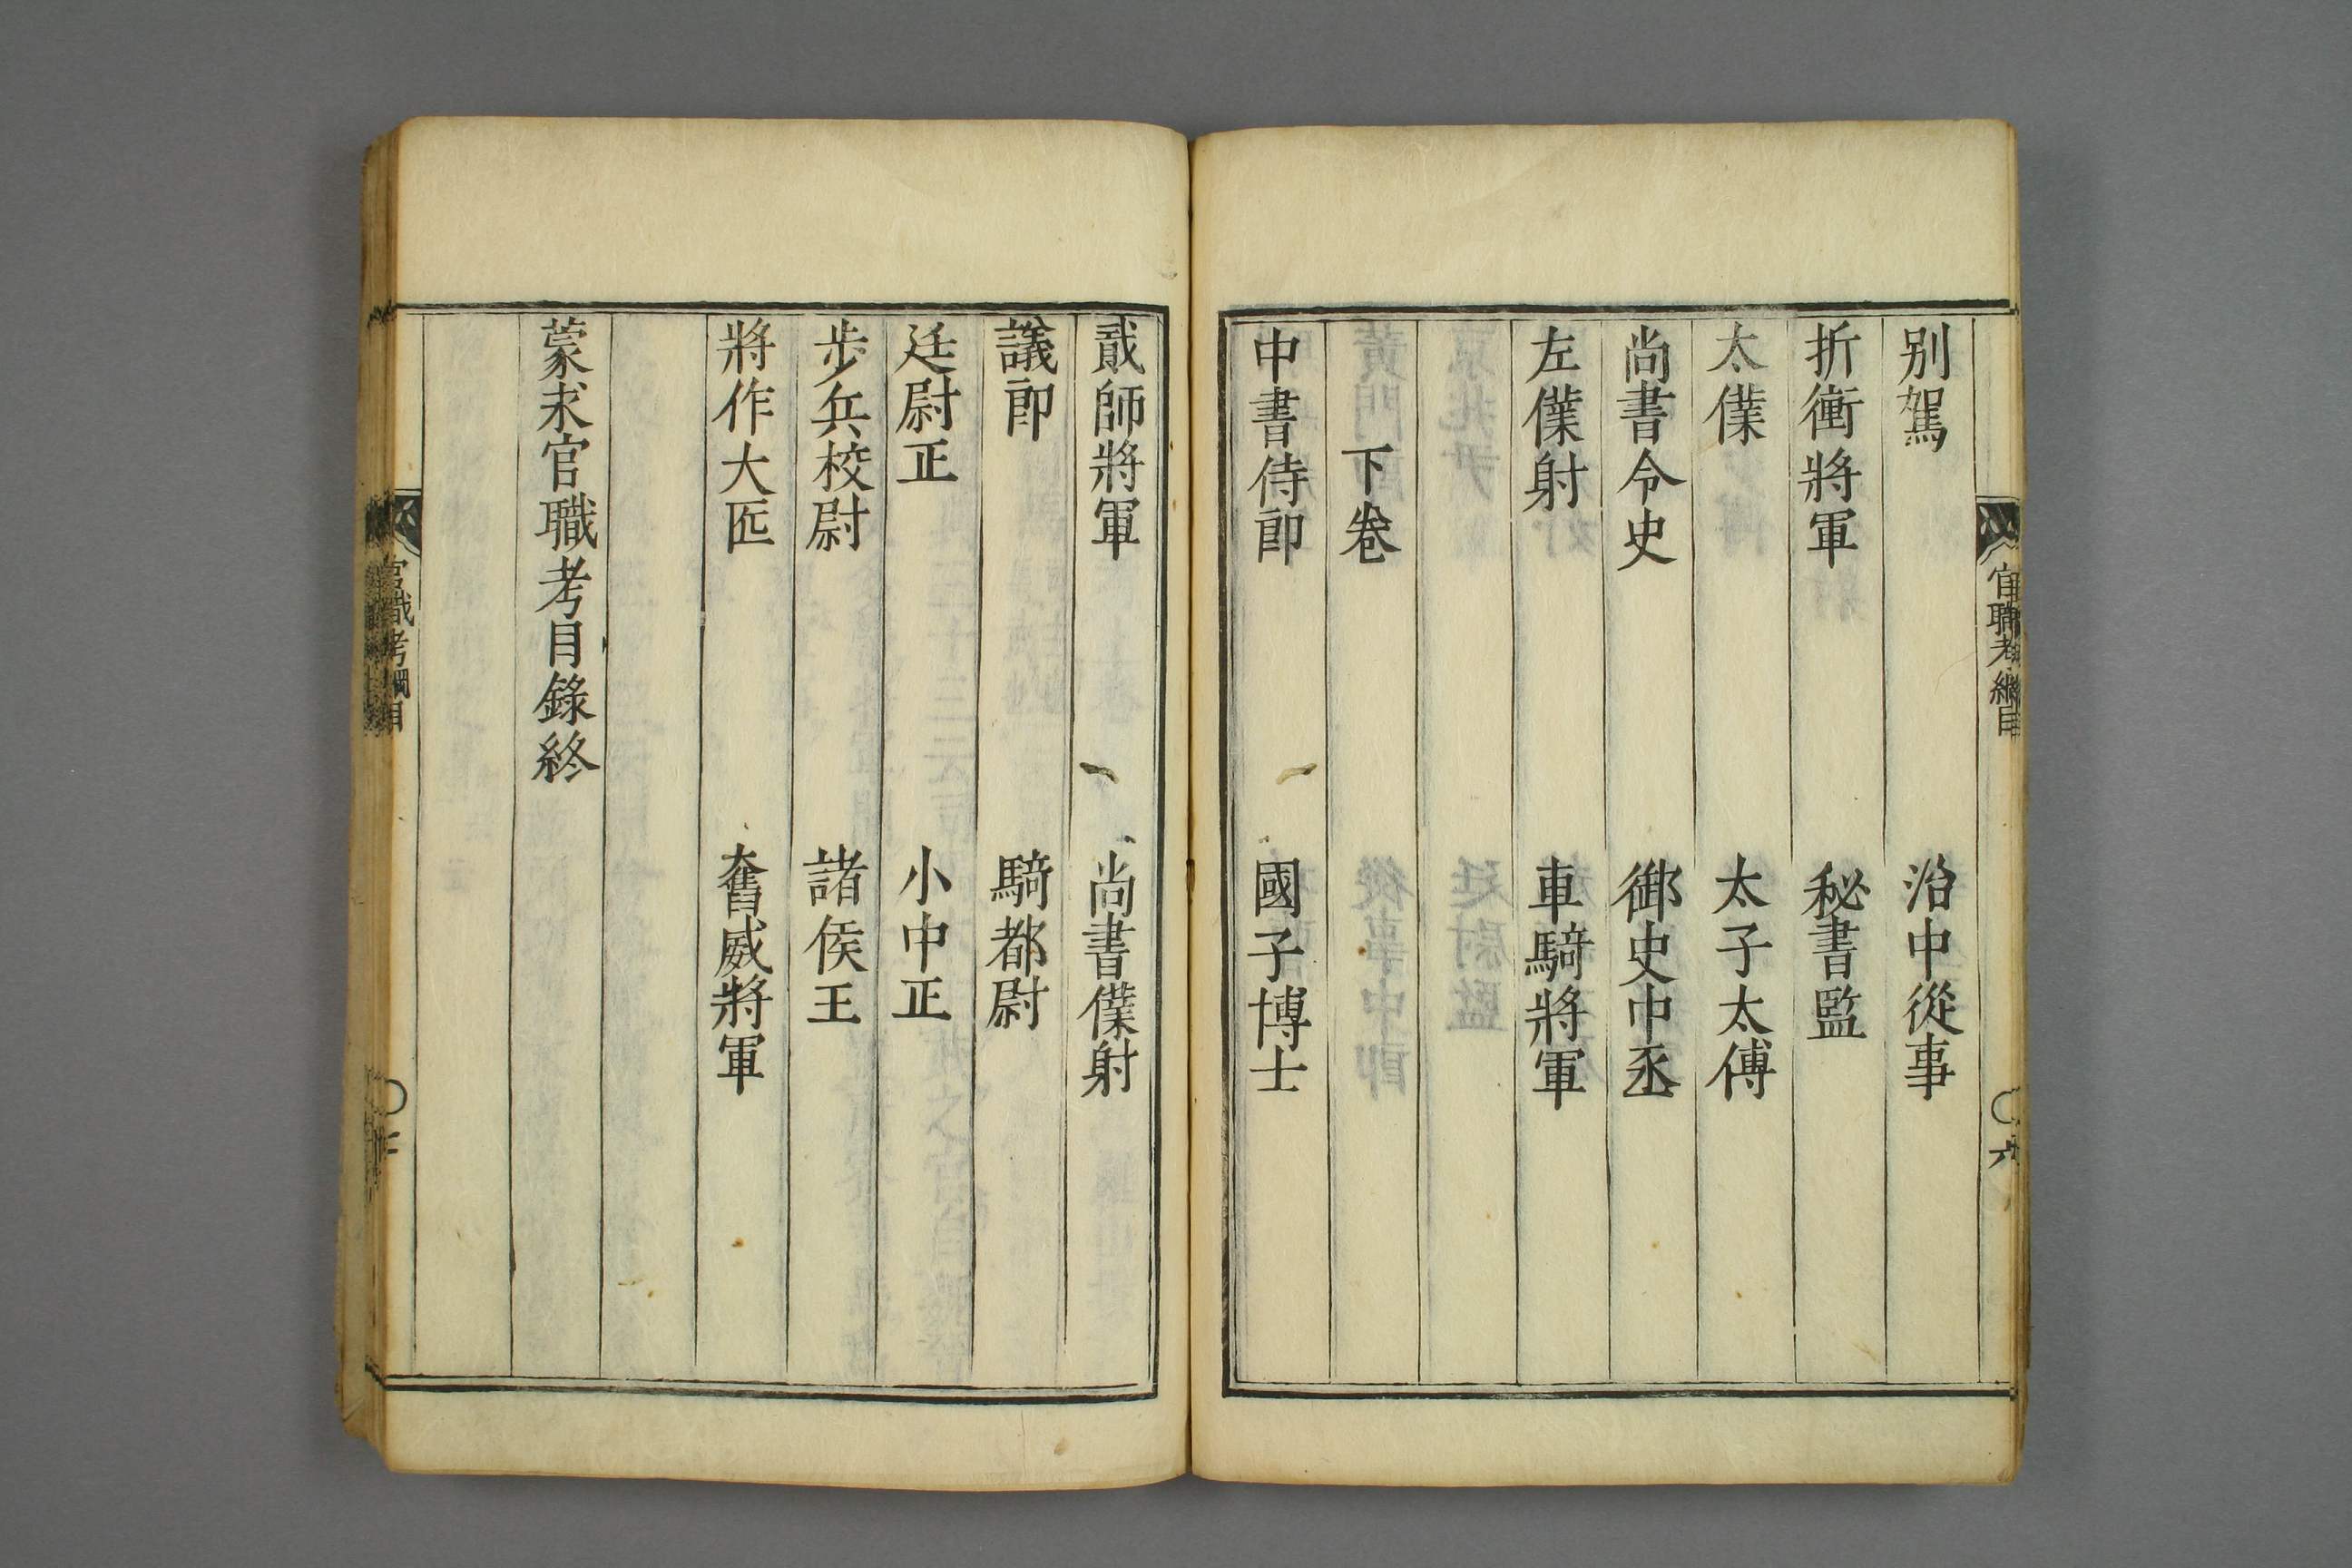 別駕　治中從事
折衝將軍　秘書監
太僕　太子太傅
尚書令史　御史中丞
左僕射　車騎將軍
下卷
中書侍郎　國子博士
貳師將軍　尚書僕射
議郎　騎都尉
廷尉正　小中正
步兵校尉　諸侯王
將作大匠　奮威將軍
蒙求官職考目錄終
官職考綱目